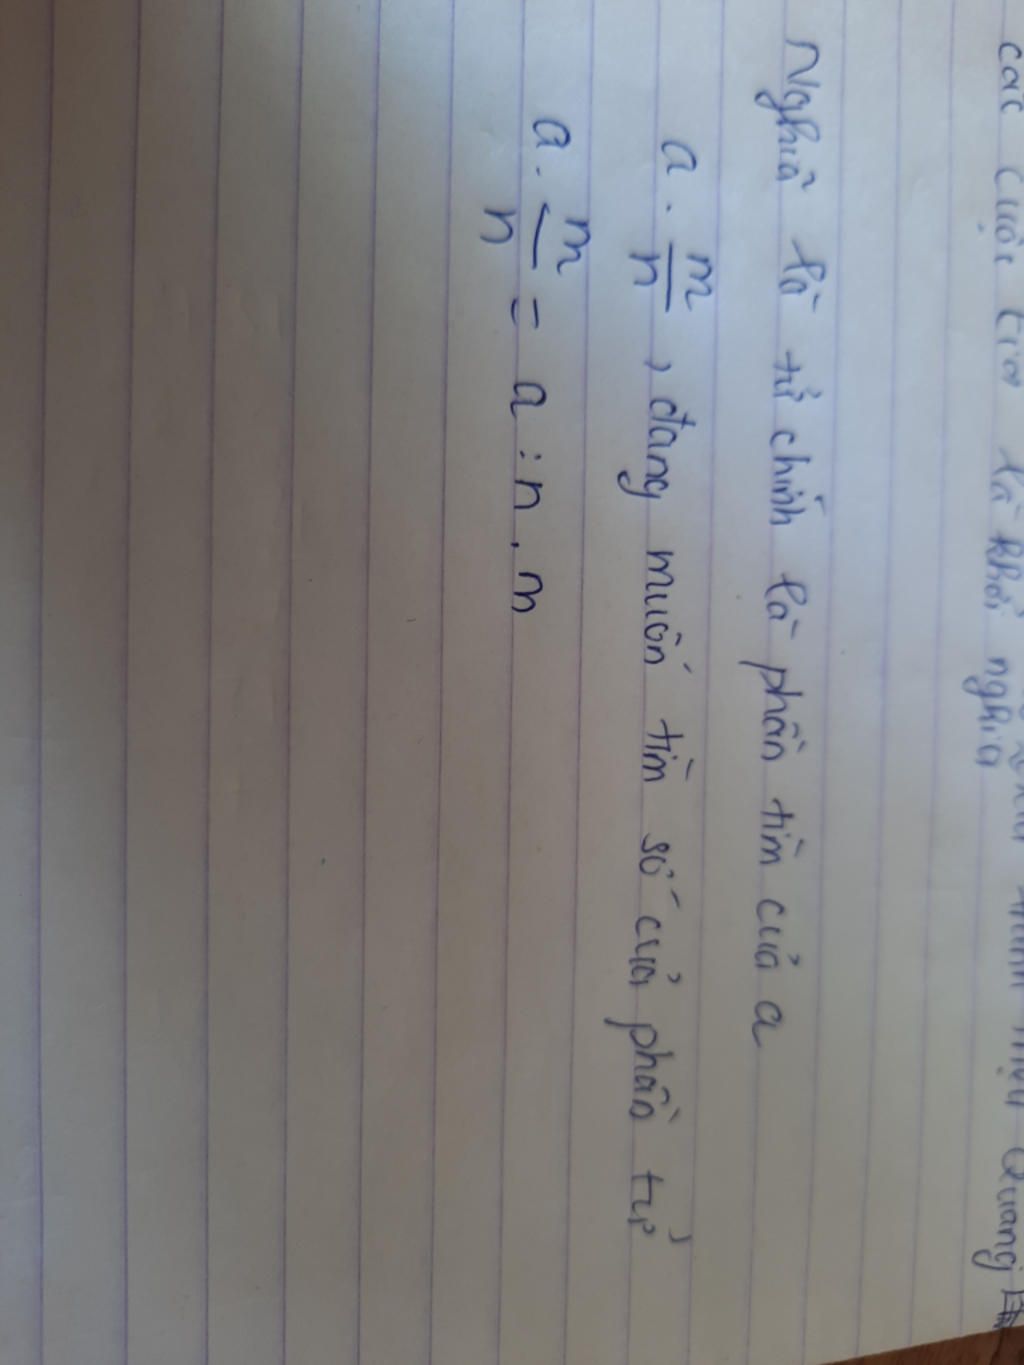 các cuộc
là khởi nghĩa Quang
Nghĩa là tử chính là phần tìm của a
a . m/n , đang muốn tìm số của phần tử
a . m/n = a : n . m